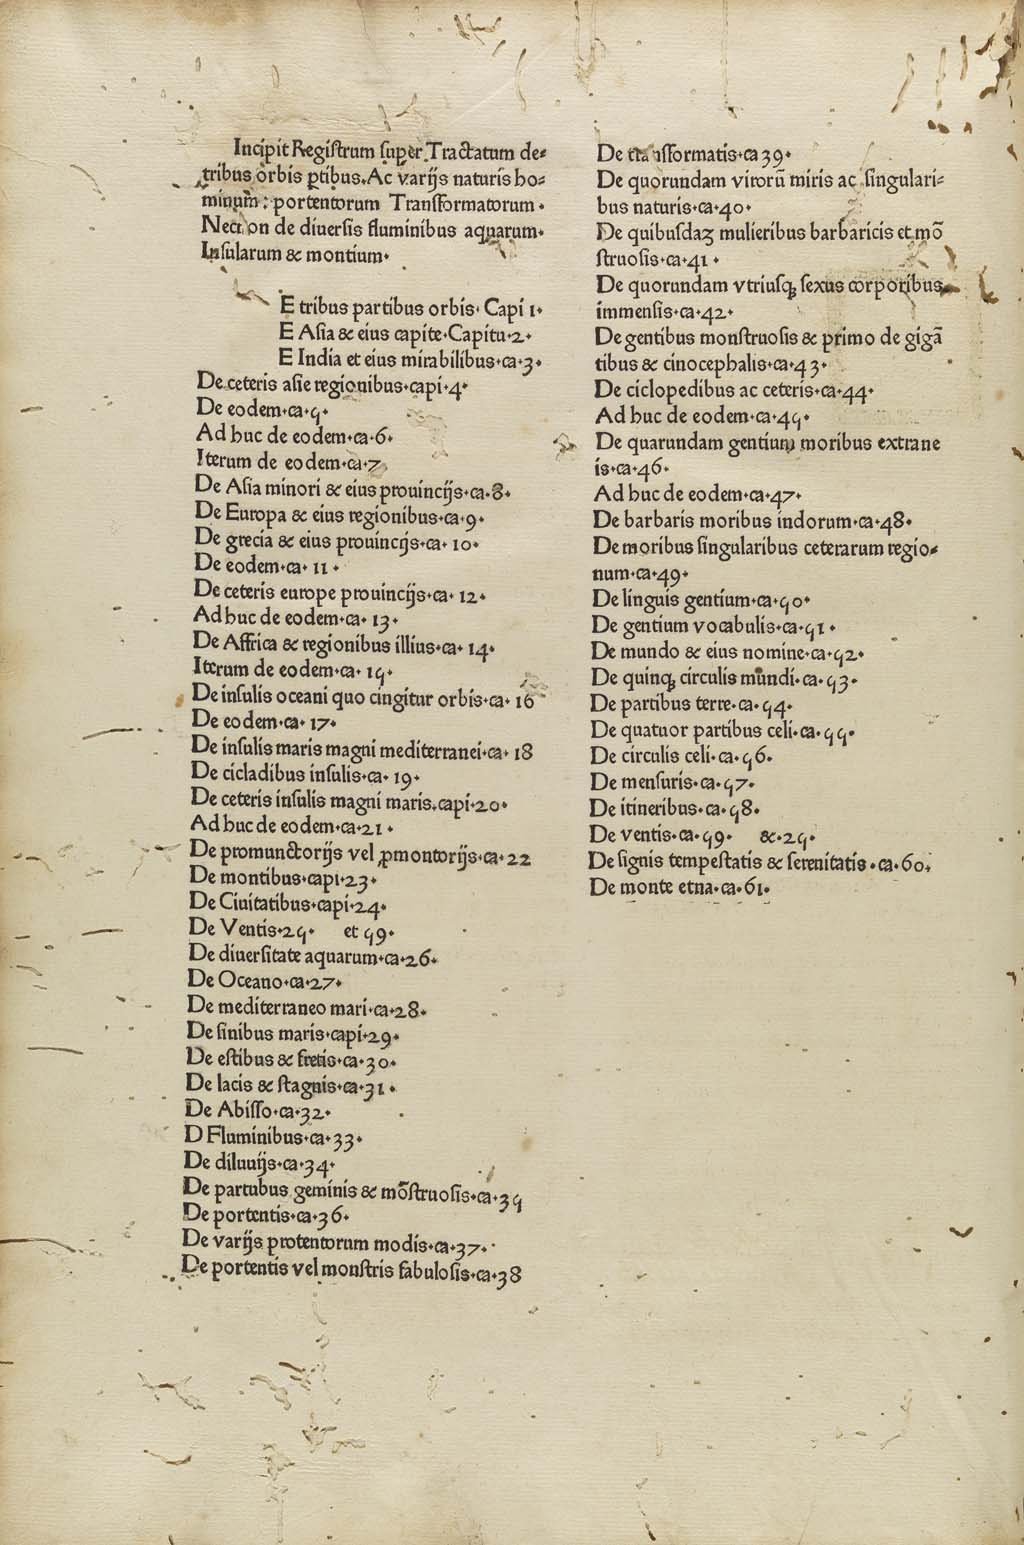 Incipit Regiſtrum ſuper Tractatum de⸗
tribus orbis ꝑtibus. Ac varijs naturis ho⸗
minum: portentorum Tranſformatorum.
Necnon de diuerſis fluminibus aquarum.
Inſularum & montium.
E tribus partibus orbis. Capi 1.
E Aſia & eius capite. Capitu. 2.
E India et eius mirabilibus. ca. 3.
De ceteris aſie regionibus. capi. 4.
De eodem. ca. 5.
Ad huc de eodem. ca. 6.
Iterum de eodem. ca. 7
De Aſia minori & eius prouincijs. ca. 8.
De Europa & eius regionibus. ca. 9.
De grecia & eius prouincijs. ca. 10.
De eodem. ca. 11.
De ceteris europe prouincijs. ca. 12.
Ad huc de eodem. ca. 13.
De Affrica & regionibus illius. ca. 14.
Iterum de eodem. ca. 15.
De inſulis oceani quo cingitur orbis. ca. 16
De eodem. ca. 17.
De inſulis maris magni mediterranei. ca. 18
De cicladibus inſulis. ca. 19.
De ceteris inſulis magni maris. capi. 20.
Ad huc de eodem. ca. 21.
De promunctorijs vel ꝓmontorijs. ca. 22
De montibus. capi. 23.
De Ciuitatibus. capi. 24.
De Ventis. 25. et 59.
De diuerſitate aquarum. ca. 26.
De Oceano. ca. 27.
De mediterraneo mari. ca. 28.
De ſinibus maris. capi. 29.
De eſtibus & fretis. ca. 30.
De lacis & ſtagnis. ca. 31.
De Abiſſo. ca. 32.
D Fluminibus. ca. 33.
De diluuijs. ca. 34.
De partubus geminis & mōſtruoſis. ca. 35
De portentis. ca. 36.
De varijs protentorum modis. ca. 37.
De portentis vel monſtris fabuloſis. ca. 38
De tranſformatis. ca 39.
De quorundam virorū miris ac ſingulari⸗
bus naturis. ca. 40.
De quibuſdaꝫ mulieribus barbaricis et mō
ſtruoſis. ca. 41.
De quorundam vtriuſqꝫ ſexus corporibus
immenſis. ca. 42.
De gentibus monſtruoſis & primo de gigā
tibus & cinocephalis. ca. 43.
De ciclopedibus ac ceteris. ca. 44.
Ad huc de eodem. ca. 45.
De quarundam gentium moribus extrane
is. ca. 46.
Ad huc de eodem. ca. 47.
De barbaris moribus indorum. ca. 48.
De moribus ſingularibus ceterarum regio⸗
num. ca. 49.
De linguis gentium. ca. 50.
De gentium vocabulis. ca. 51.
De mundo & eius nomine. ca. 52.
De quinqꝫ circulis mundi. ca. 53.
De partibus terre. ca. 54.
De quatuor partibus celi. ca. 55.
De circulis celi. ca. 56.
De menſuris. ca. 57.
De itineribus. ca. 58.
De ventis. ca. 59. &. 25.
De ſignis tempeſtatis & ſerenitatis. ca. 60.
De monte etna. ca. 61.